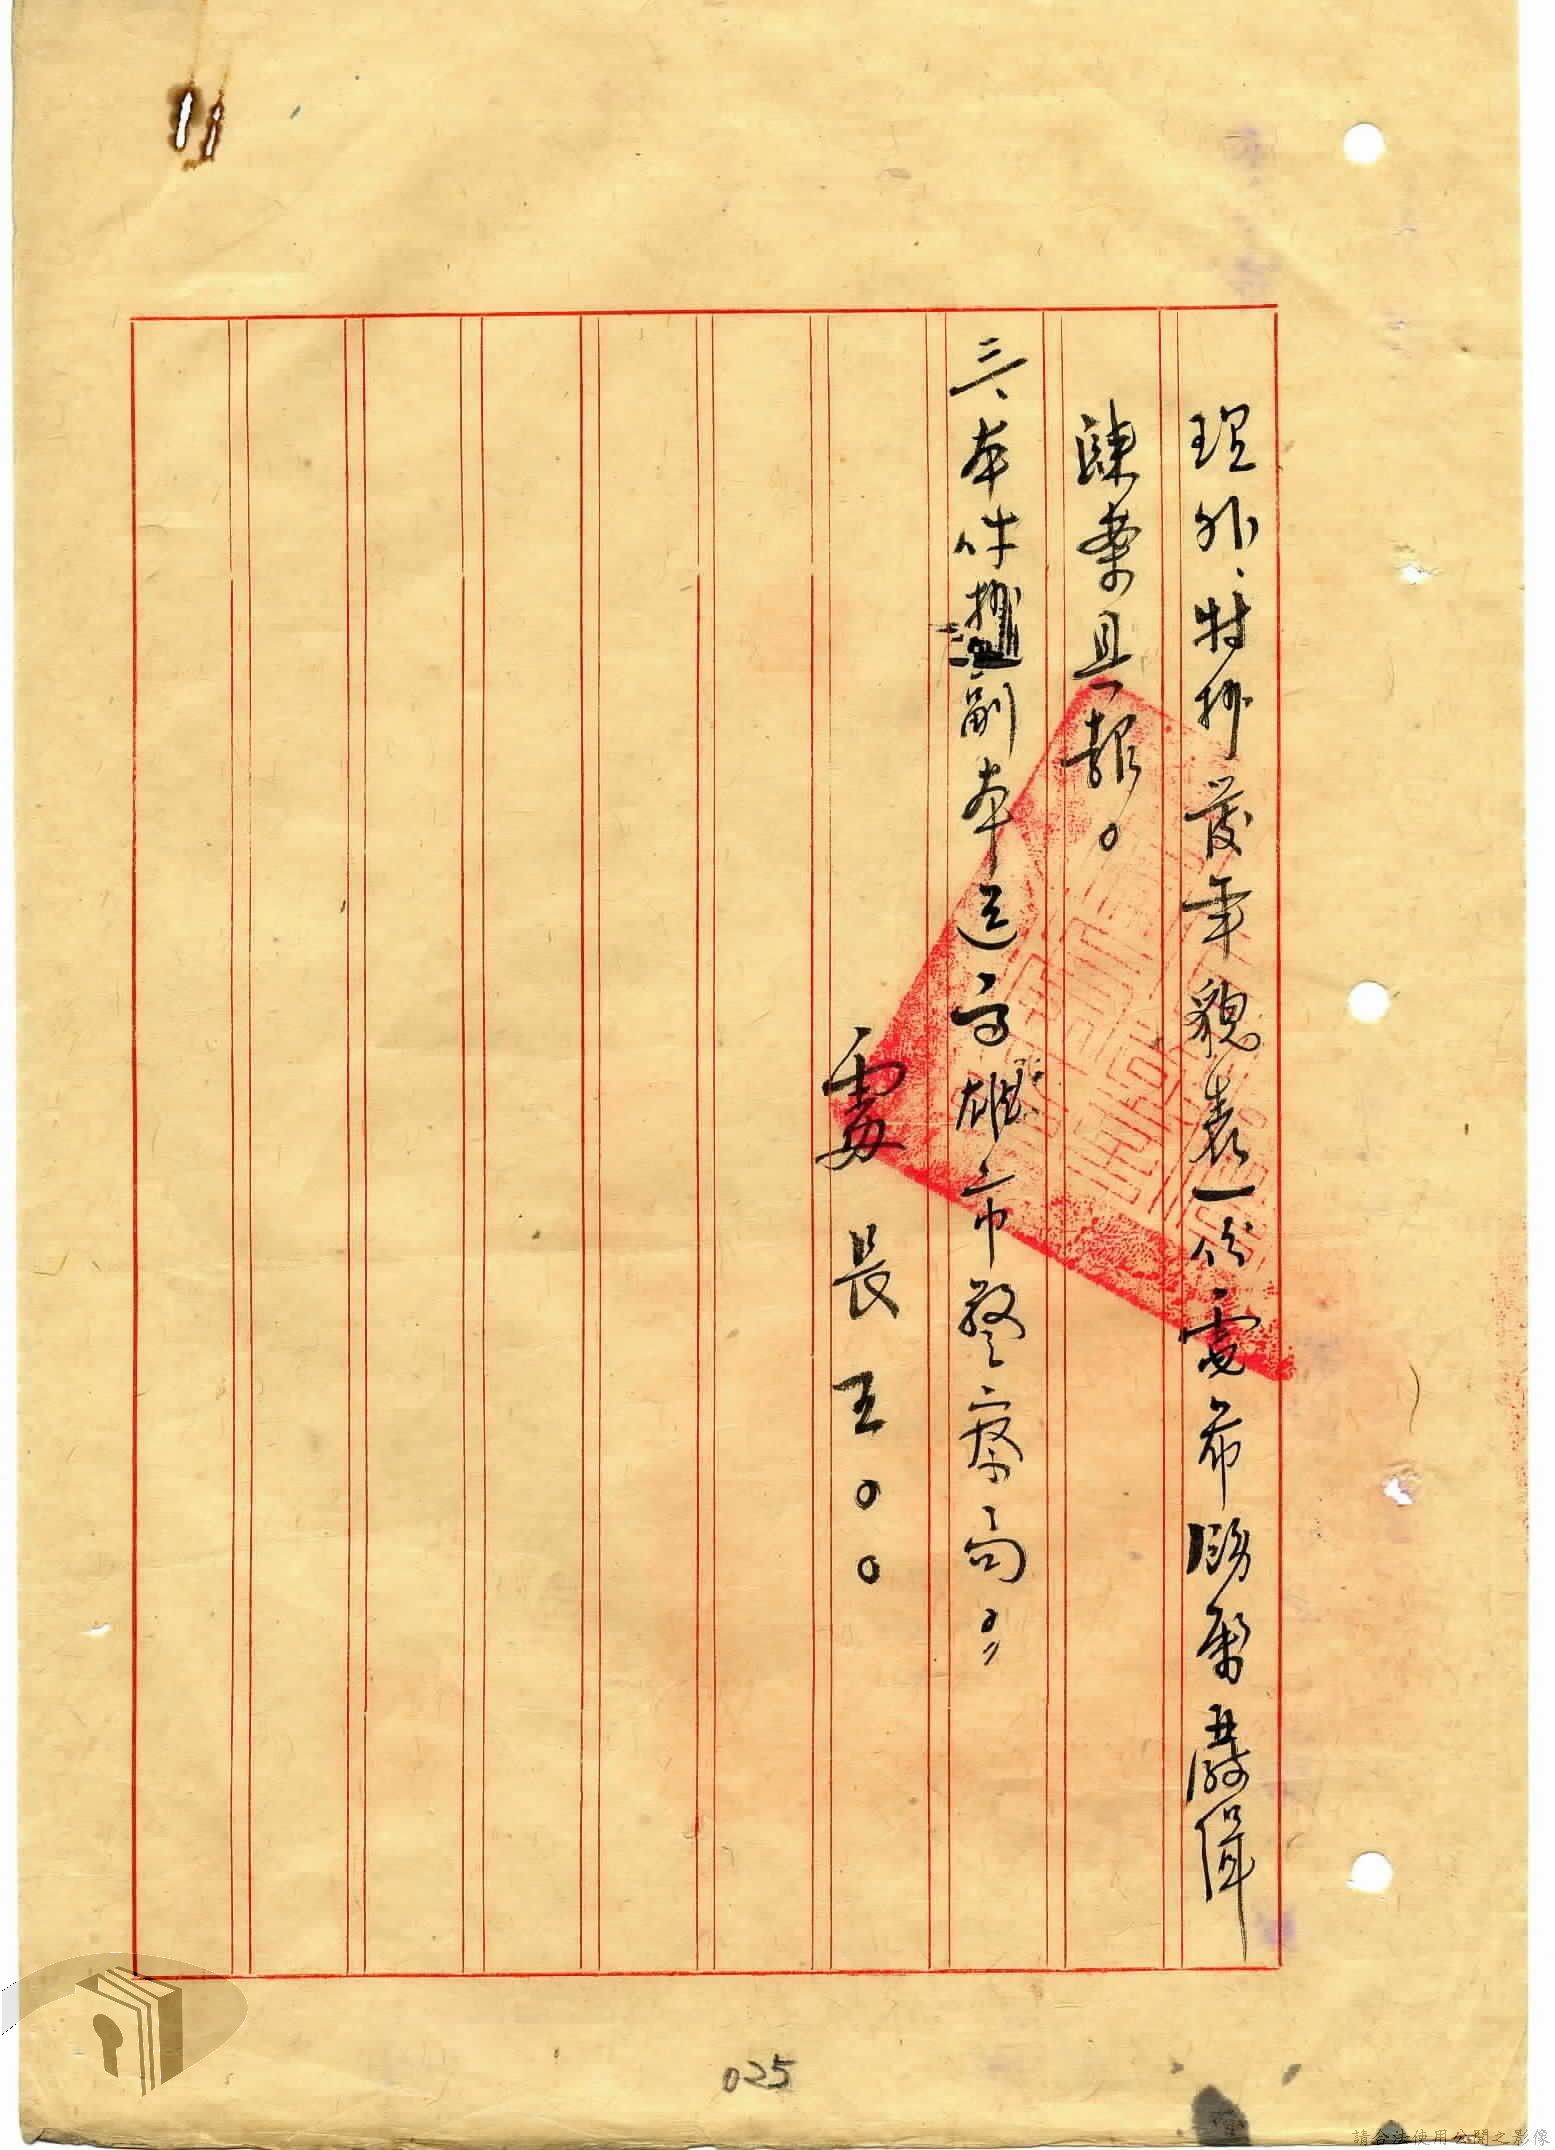 理外、特抄發年貌表一份電希飭屬嚴緝
陳案具報。
三、本件抄副本送高雄市警察局。
處長王○○
025
請合法使用公開之影像